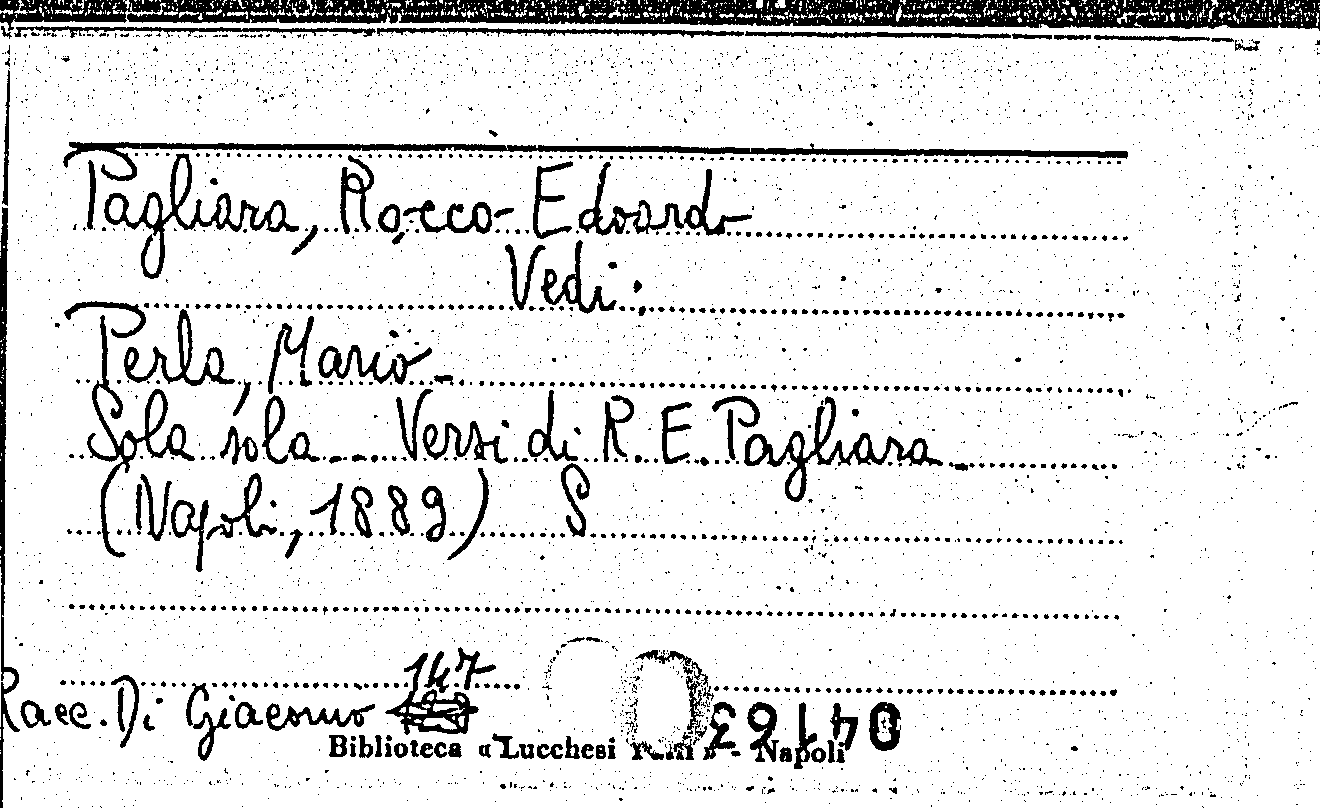 Pagliara, Rocco Edoardo
Vedi:
Perla, Mario
Sola sola... Versi di R. E. Pagliara
(Napoli, 1889) S
147
Racc. Di Giacomo
Biblioteca « Lucchesi » - Napoli